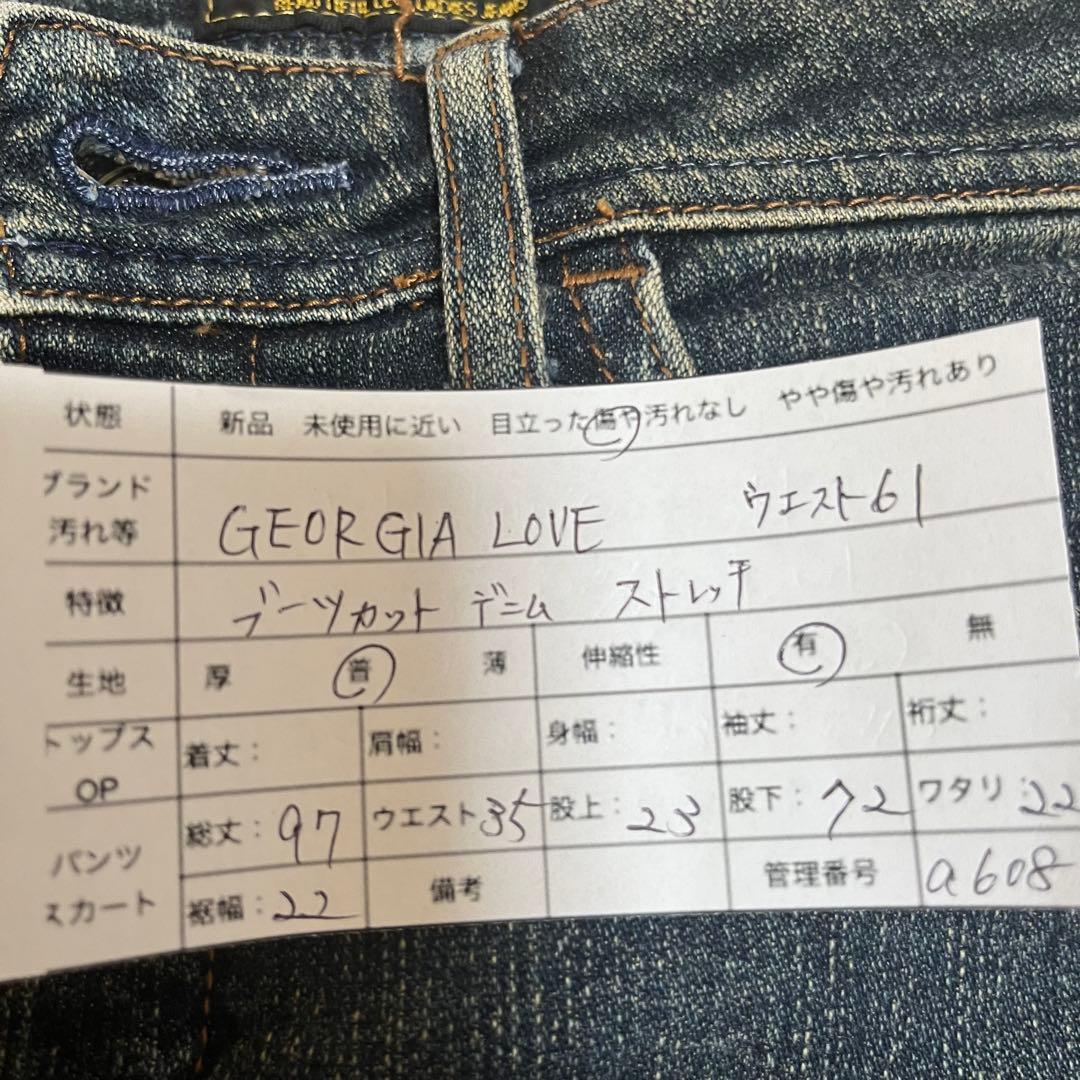 BEAUTIFUL LADIES JEANS
状態 新品 未使用に近い 目立った傷や汚れなし やや傷や汚れあり
ブランド
汚れ等 GEORGIA LOVE ウエスト61
特徴 ブーツカット デニム ストレッチ
生地 厚 普 薄 伸縮性 有 無
トップス
OP 着丈: 肩幅: 身幅: 袖丈: 裄丈:
パンツ
スカート 総丈:97 ウエスト35 股上:23 股下:72 ワタリ:22
裾幅:22 備考 管理番号 a608